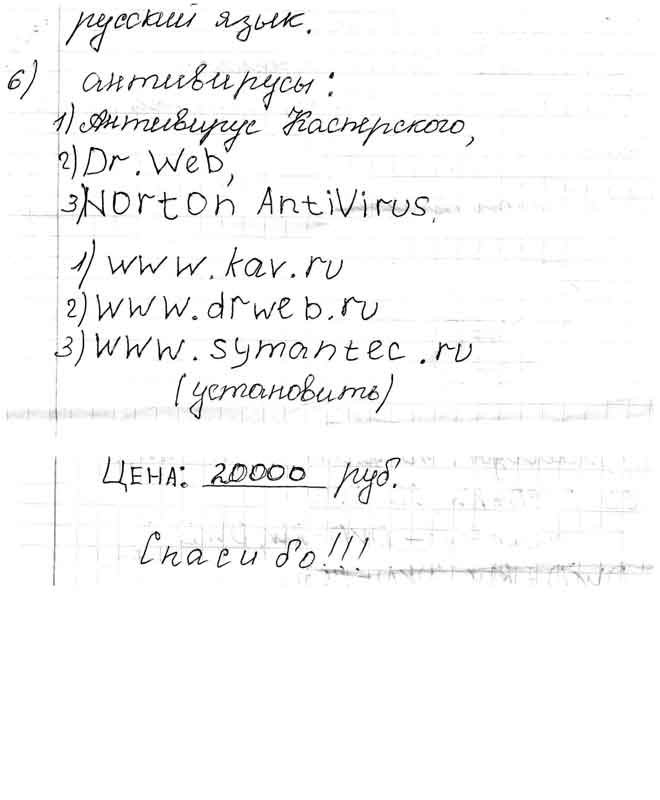 русский язык.
6) антивирусы:
1) Антивирус Касперского,
2) Dr. Web,
3) Norton AntiVirus.
1) www.kav.ru
2) www.drweb.ru
3) www.symantec.ru
(установить)
ЦЕНА: 20000 руб.
Спасибо!!!